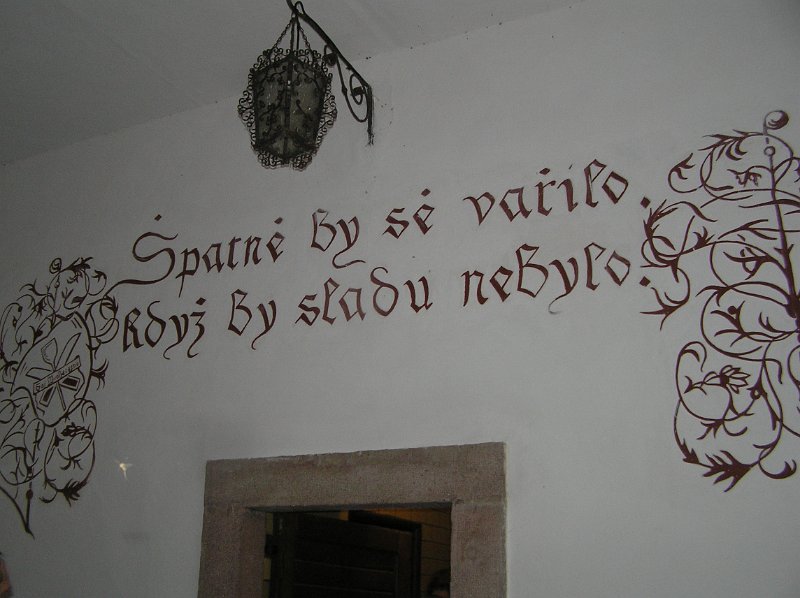 Špatně by sě vařilo,
když by sladu nebylo.